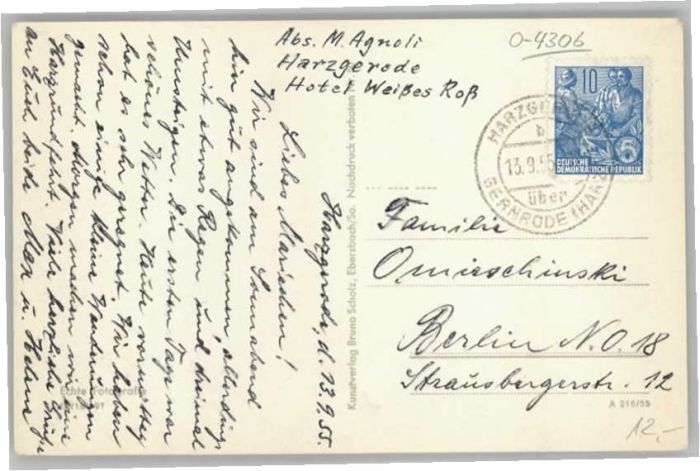 Harzgerode, d. 13.9.55.
Liebes Mariechen!
Wir sind am Sonnabend
hier gut angekommen, allerdings
mit etwas Regen und dreimal
Umsteigen. Die ersten Tage war
schönes Wetter. Heute vormittag
hat es sehr geregnet. Wir haben
schon einige kleine Wanderungen
gemacht. Morgen machen wir eine
Harzrundfahrt. Viele herzliche Grüße
an Euch beide Max u. Helene
Echte Fotografie
Kunstverlag Bruno Scholz, Ebersbach/Sa. Nachdruck verboten
Abs. M. Agnoli
Harzgerode
Hotel Weißes Roß
O-4306
10
DEUTSCHE
DEMOKRATISCHE REPUBLIK
5
HARZGERODE
13.9.55
über
GERNRODE (HARZ)
Familie
Omieschinski
Berlin N.O. 18
Strausbergerstr. 12
A 216/55
12,-